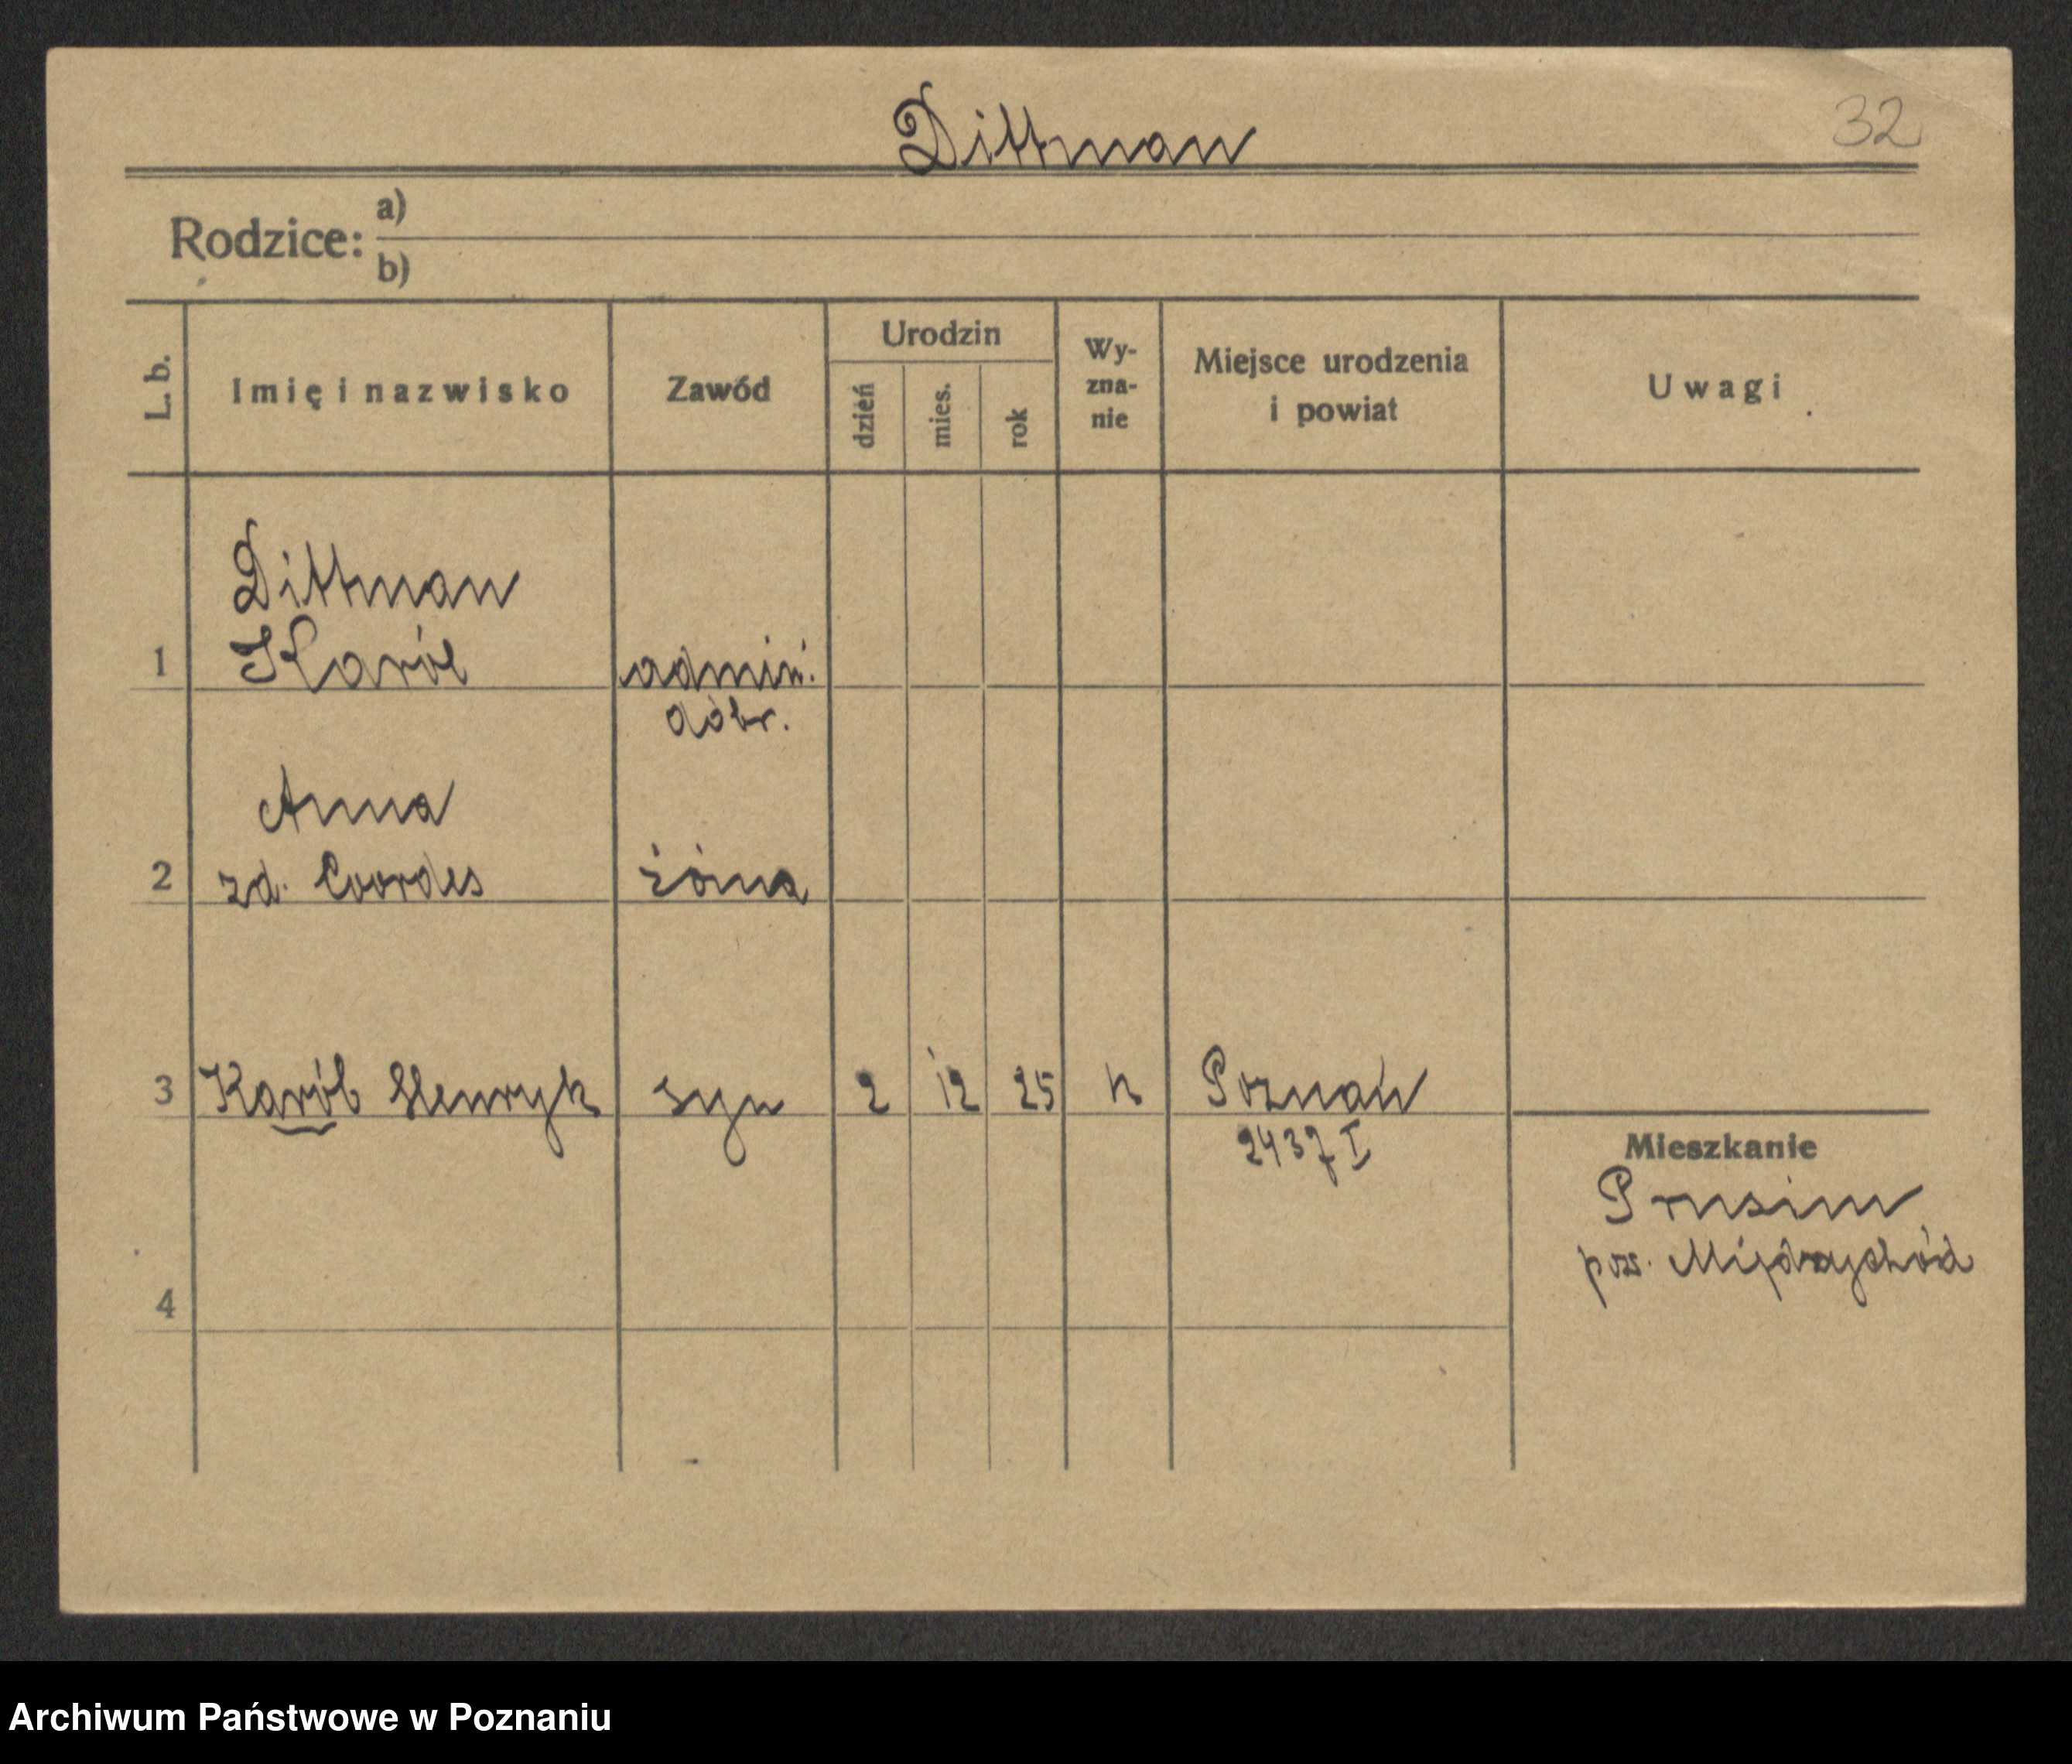 Dittman
32
Rodzice: a)
b)
L. b. Imię i nazwisko Zawód Urodzin dzień mies. rok Wy- zna- nie Miejsce urodzenia i powiat Uwagi
Dittman
1 Karól admin.
dóbr.
Anna
2 zd. Coordes żóna
3 Karól Henryk syn 2 12 25 n Poznań
2437 I
Mieszkanie
Prusim
pow. Międzychód
4
Archiwum Państwowe w Poznaniu